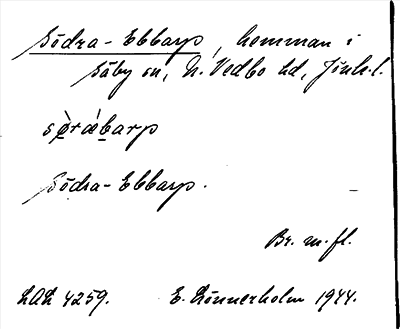 Södra-Ebbarp, hemman i
Säby sn, N. Vedbo hd, Jönk. l.
sø̀rǽbarp
Södra-Ebbarp.
Br. m. fl.
LAL 4259. E. Lönnerholm 1944.